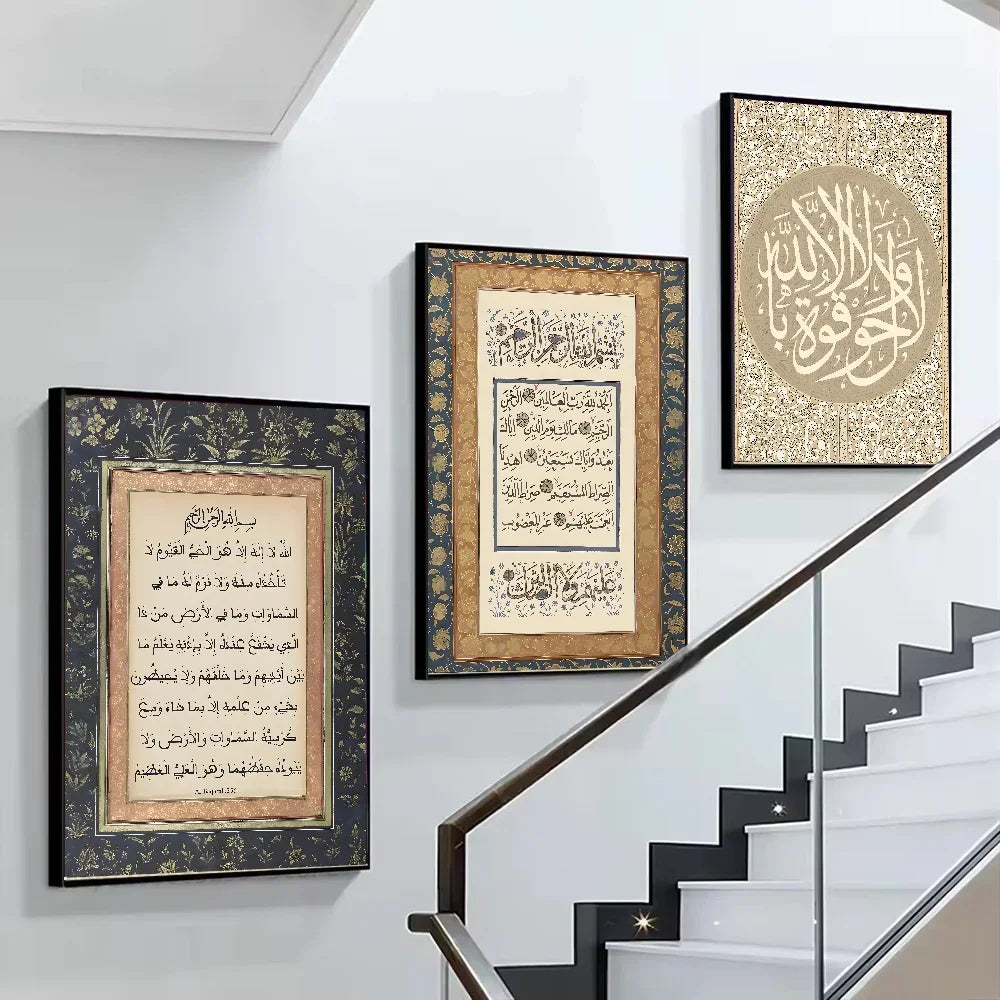 بسم الله الرحمن الرحيم
الله لا إله إلا هو الحي القيوم لا
تأخذه سنة ولا نوم له ما في
السماوات وما في الأرض من ذا
الذي يشفع عنده إلا بإذنه يعلم ما
بين أيديهم وما خلفهم ولا يحيطون
بشيء من علمه إلا بما شاء وسع
كرسيه السماوات والأرض ولا
يئوده حفظهما وهو العلي العظيم
بسم الله الرحمن الرحيم
الحمد لله رب العالمين الرحمن
الرحيم مالك يوم الدين إياك
نعبد وإياك نستعين اهدنا
الصراط المستقيم صراط الذين
أنعمت عليهم غير المغضوب
عليهم ولا الضالين
لا حول ولا قوة إلا بالله